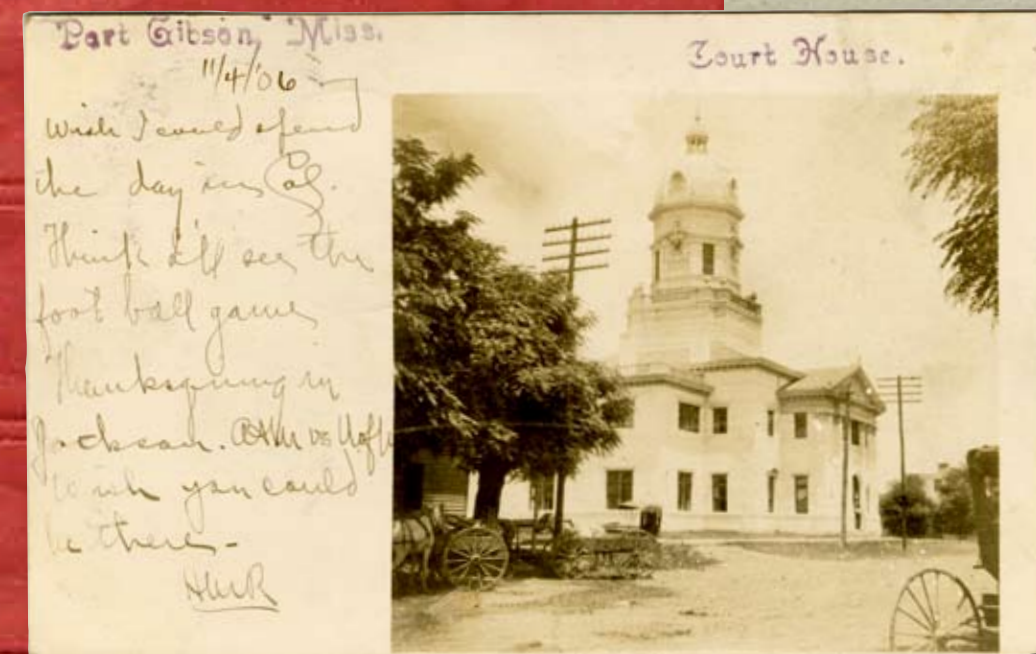 "Port Gibson," Miss.
Court House.
11/4/'06
Wish I could spend
the day in Col.
Think I'll see the
foot ball game
Thanksgiving in
Jackson. A&M vs U of M
Wish you could
be there -
HWR